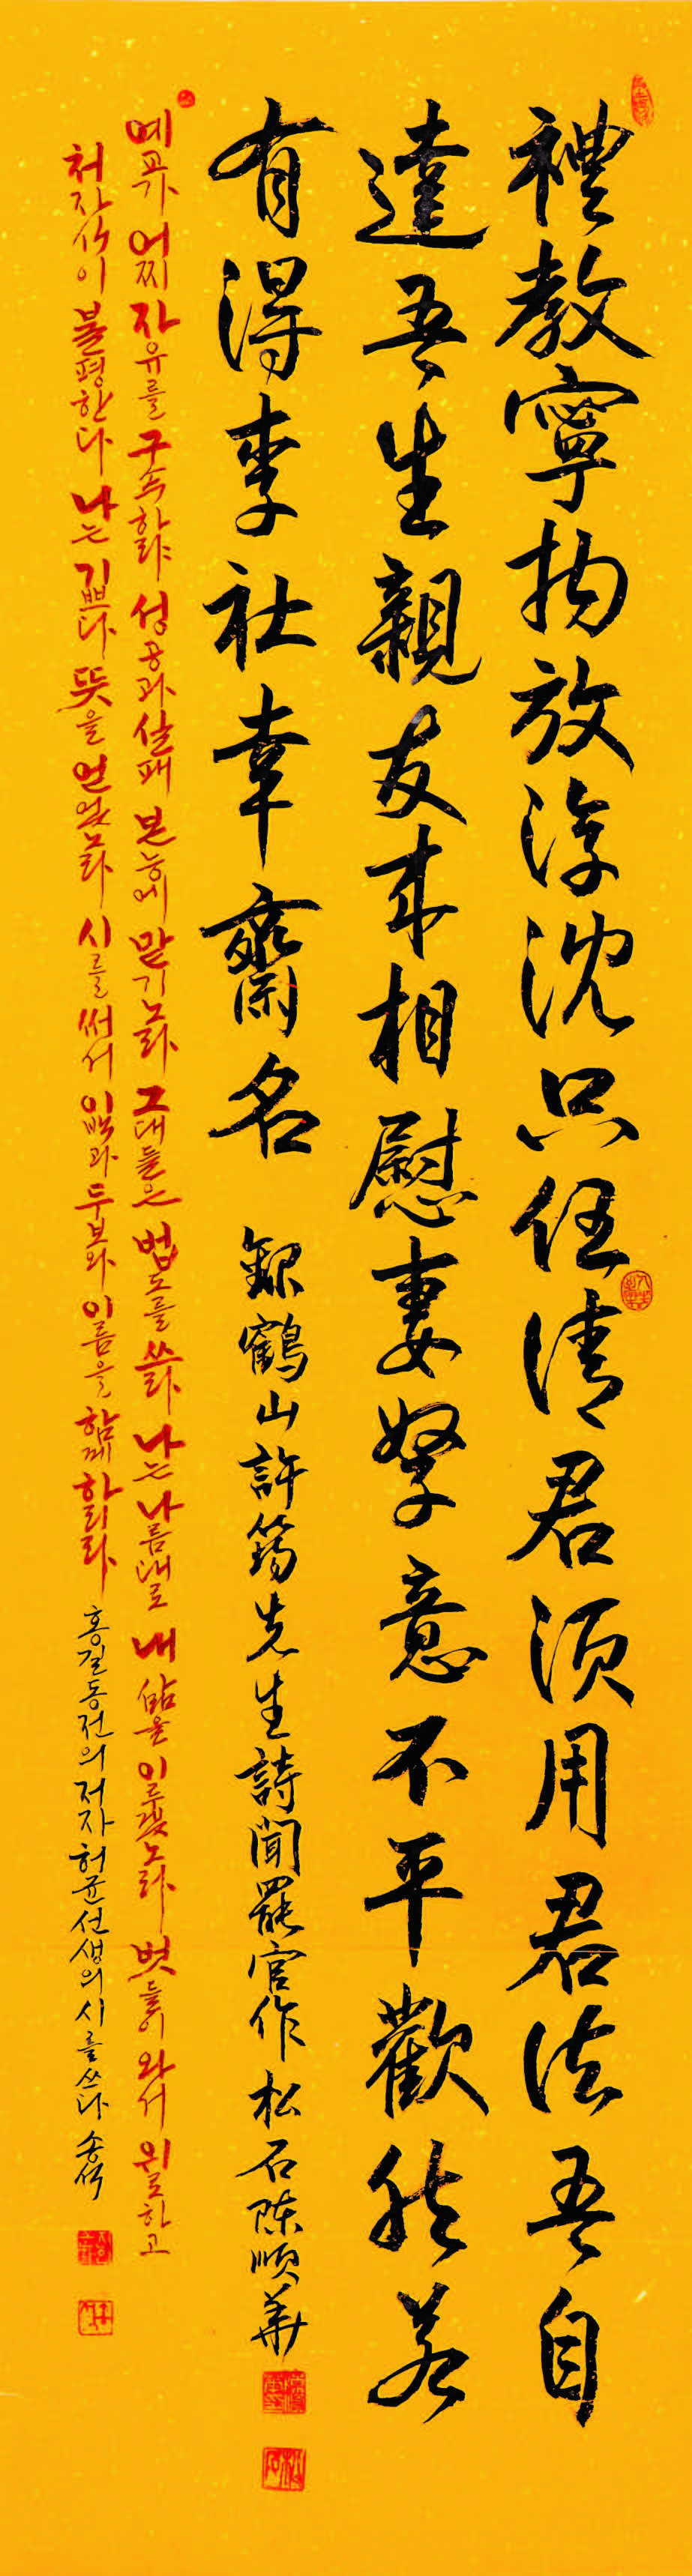 禮教寧拘放浮沈只任情君須用君法吾自
達吾生親友來相慰妻孥意不平歡然若
有得李社幸齋名 錄鶴山許筠先生詩聞罷官作松石陳順華
예교가 어찌 자유를 구속하랴 성공과 실패 본능에 맡기노라 그대들은 법도를 쓰라 나는 나름대로 내 삶을 이루겠노라 벗들이 와서 위로하고
처자식이 불평한다 나는 기쁘다 뜻을 얻었노라 시를 써서 이백과 두보와 이름을 함께 하리라 홍길동전의 저자 허균선생의 시를 쓰다 송석